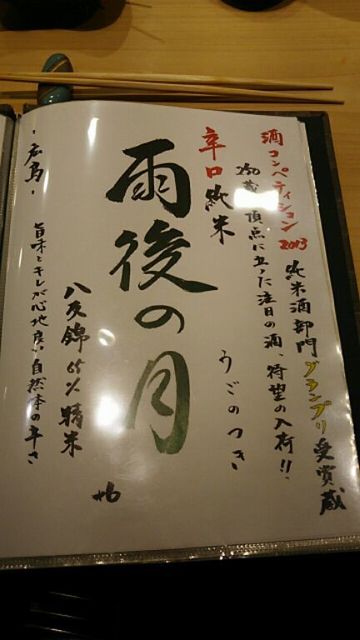 酒コンペティション2013 純米酒部門グランプリ受賞蔵
250蔵の頂点に立った注目の酒、待望の入荷!!
辛口純米
うごのつき
雨後の月
+6
八反錦65%精米
旨味とキレが心地良い自然本の辛さ
・広島・